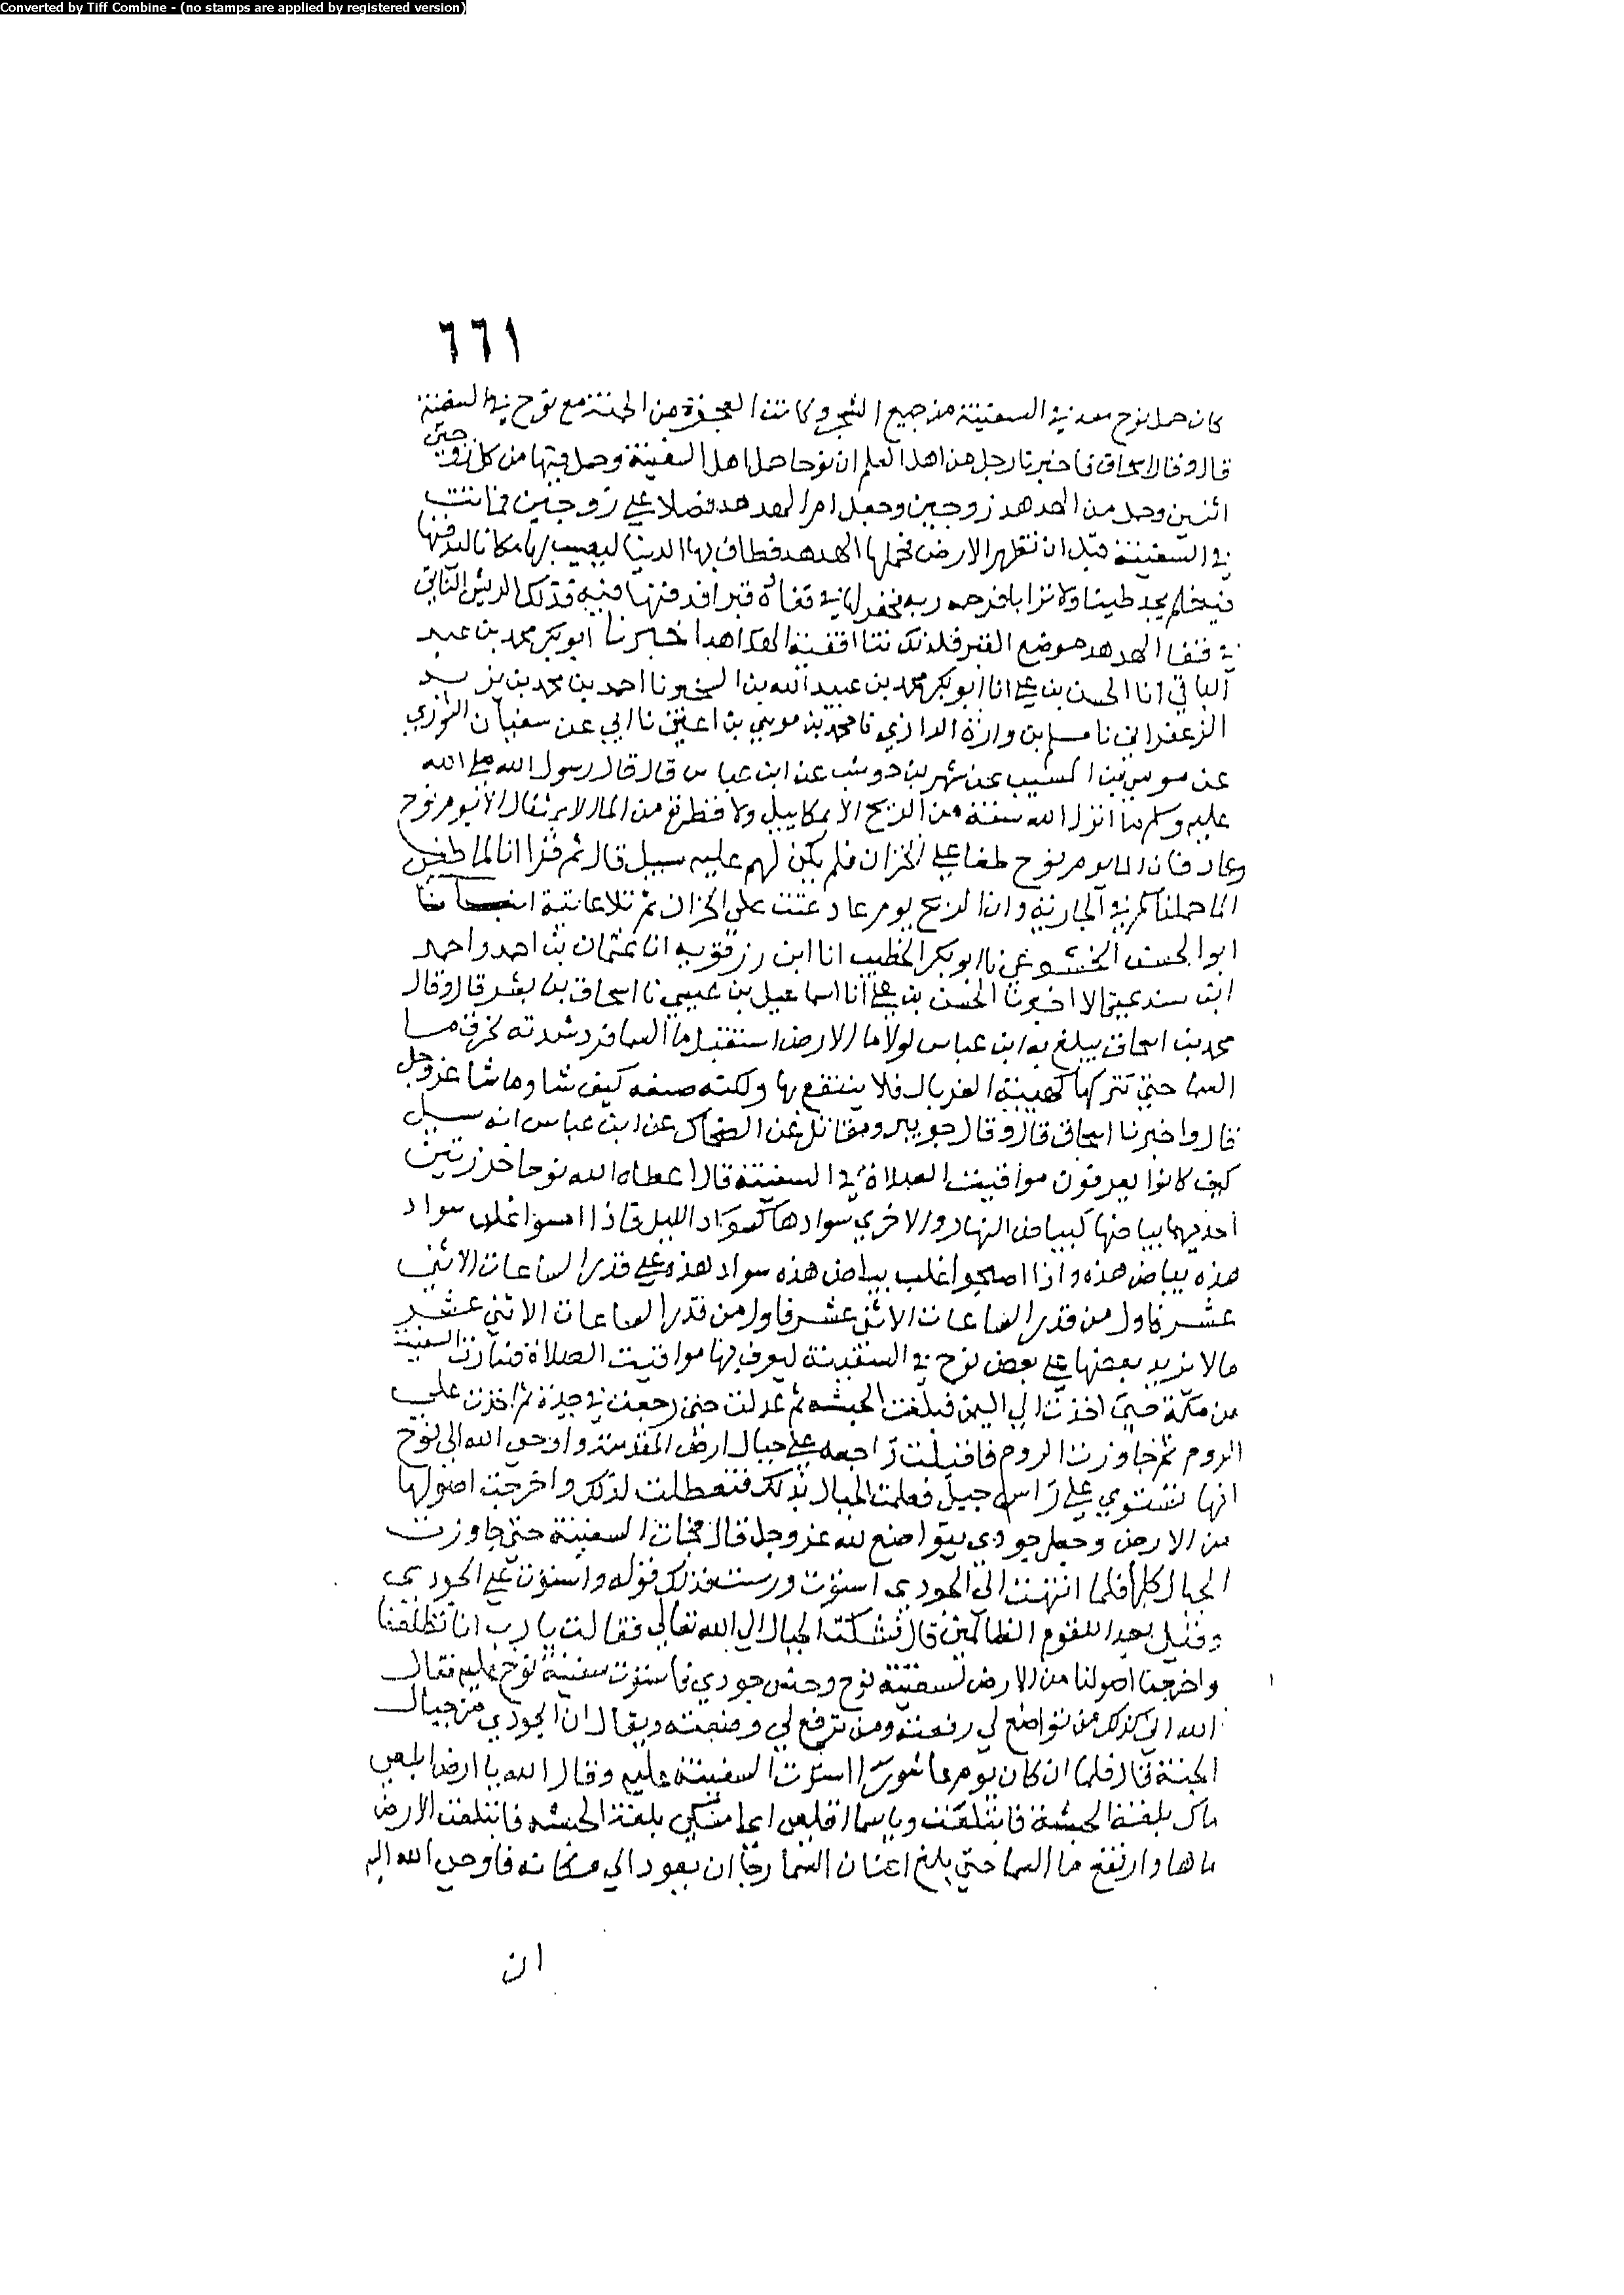 Converted by Tiff Combine - (no stamps are applied by registered version)
٦٦١
كان حمل نوح معه في السفينة من جميع الشجر وكانت العجوة من الجنة مع نوح في السفينة
قال وقال اسحاق فاخبرنا رجل من اهل العلم ان نوحا حمل اهل السفينة وحمل فيها من كل زوجين
اثنين وحمل من الهدهد زوجين وجعل ام الهدهد فضلا على زوجين فماتت
في السفينة قبل ان تظهر الارض فحملها الهدهد فطاف بها الدنيا ليصيب لها مكانا ليدفنها
فيه فلم يجد طينا ولا ترابا فرحمه ربه فحفر له في قفاه قبرا فدفنها فيه فذلك الريش الناتي
في قفا الهدهد موضع القبر فلذلك نتا اقفية الهداهد اخبرنا ابو بكر محمد بن عبد
الباقي انا الحسن بن علي انا ابو بكر محمد بن عبيد الله بن الشخير نا احمد بن محمد بن يزيد
الزعفراني نا مسلم بن وارة الرازي نا محمد بن موسي بن اعين نا ابي عن سفيان الثوري
عن موسي بن المسيب عن شهر بن حوشب عن ابن عباس قال قال رسول الله صلى الله
عليه وسلم ما انزل الله سفة من الريح الا بمكاييل ولا قطرة من الما الا بمثقال الا يوم نوح
وعاد فان الما يوم نوح طغا على الخزان فلم يكن لهم عليه سبيل قال ثم قرا انا لما طغى
الما حملناكم في الجارية وان الريح يوم عاد عتت علي الخزان ثم تلا عاتية
ابو الحسن الخشوعي نا ابو بكر الخطيب انا ابن رزقويه انا عثمان بن احمد واحمد
ابن سندي قالا اخبرنا الحسن بن علي انا اسماعيل بن عيسى نا اسحاق بن بشر قال وقال
محمد بن اسحاق يبلغ به ابن عباس لولا ما الارض استقبل ما السما فرد شدته لخرق ما
السما حتي تتركها كهيئة الغربال فلا ينتفع بها ولكنه صنعه كيف شا وما شا عز وجل
قال واخبرنا اسحاق قال وقال جويبر ومقاتل عن الضحاك عن ابن عباس انه سيل
كيف كانوا يعرفون مواقيت الصلاة في السفينة قال اعطاه الله نوحا خرزتين
احديهما بياضها كبياض النهار والاخري سوادها كسواد الليل فاذا امسوا غلب سواد
هذه بياض هذه واذا اصبحوا غلب بياض هذه سواد هذه على قدر الساعات الاثني
عشر فاول من قدر الساعات الاثني عشر فاول من قدر الساعات الاثني عشر
ما لا يزيد بعضها على بعض نوح في السفينة ليعرف بها مواقيت الصلاة فسارت السفينة
من مكة حتى اخذت الي اليمن فبلغت الحبشه ثم عدلت حتى رجعت في جدة ثم اخذت على
الروم ثم جاوزت الروم فاقبلت راجعه على جبال ارض المقدسة واوحى الله الى نوح
انها تستوي على راس جبل فعلمت الجبال بذلك فتطلعت لذلك واخرجت اصولها
من الارض وجعل جودي يتواضع لله عز وجل قال فجات السفينة حتى جاوزت
الجبال كلها فلما انتهت الى الجودي استوت ورست فذلك قوله واستوت على الجودي
وقيل بعدا للقوم الظالمين قال فشكت الجبال الي الله تعالي فقالت يا رب انا تطلعنا
واخرجنا اصولنا من الارض لسفينة نوح وخنس جودي فاستوت سفينة نوح عليه فقال
الله اني كذلك من تواضع لي رفعته ومن ترفع لي وضعته ويقال ان الجودي من جبال
الجنة قال فلما ان كان يوم عاشورا استوت السفينة عليه وقال الله يا ارض ابلعي
ماك بلغة الحبشة فابتلعت ويا سما اقلعي اي امسكي بلغة الحبشه فابتلعت الارض
ماها وارتفع ما السما حتي بلغ اعنان السما رجا ان يعود الي مكانه فاوحى الله اليه
ان